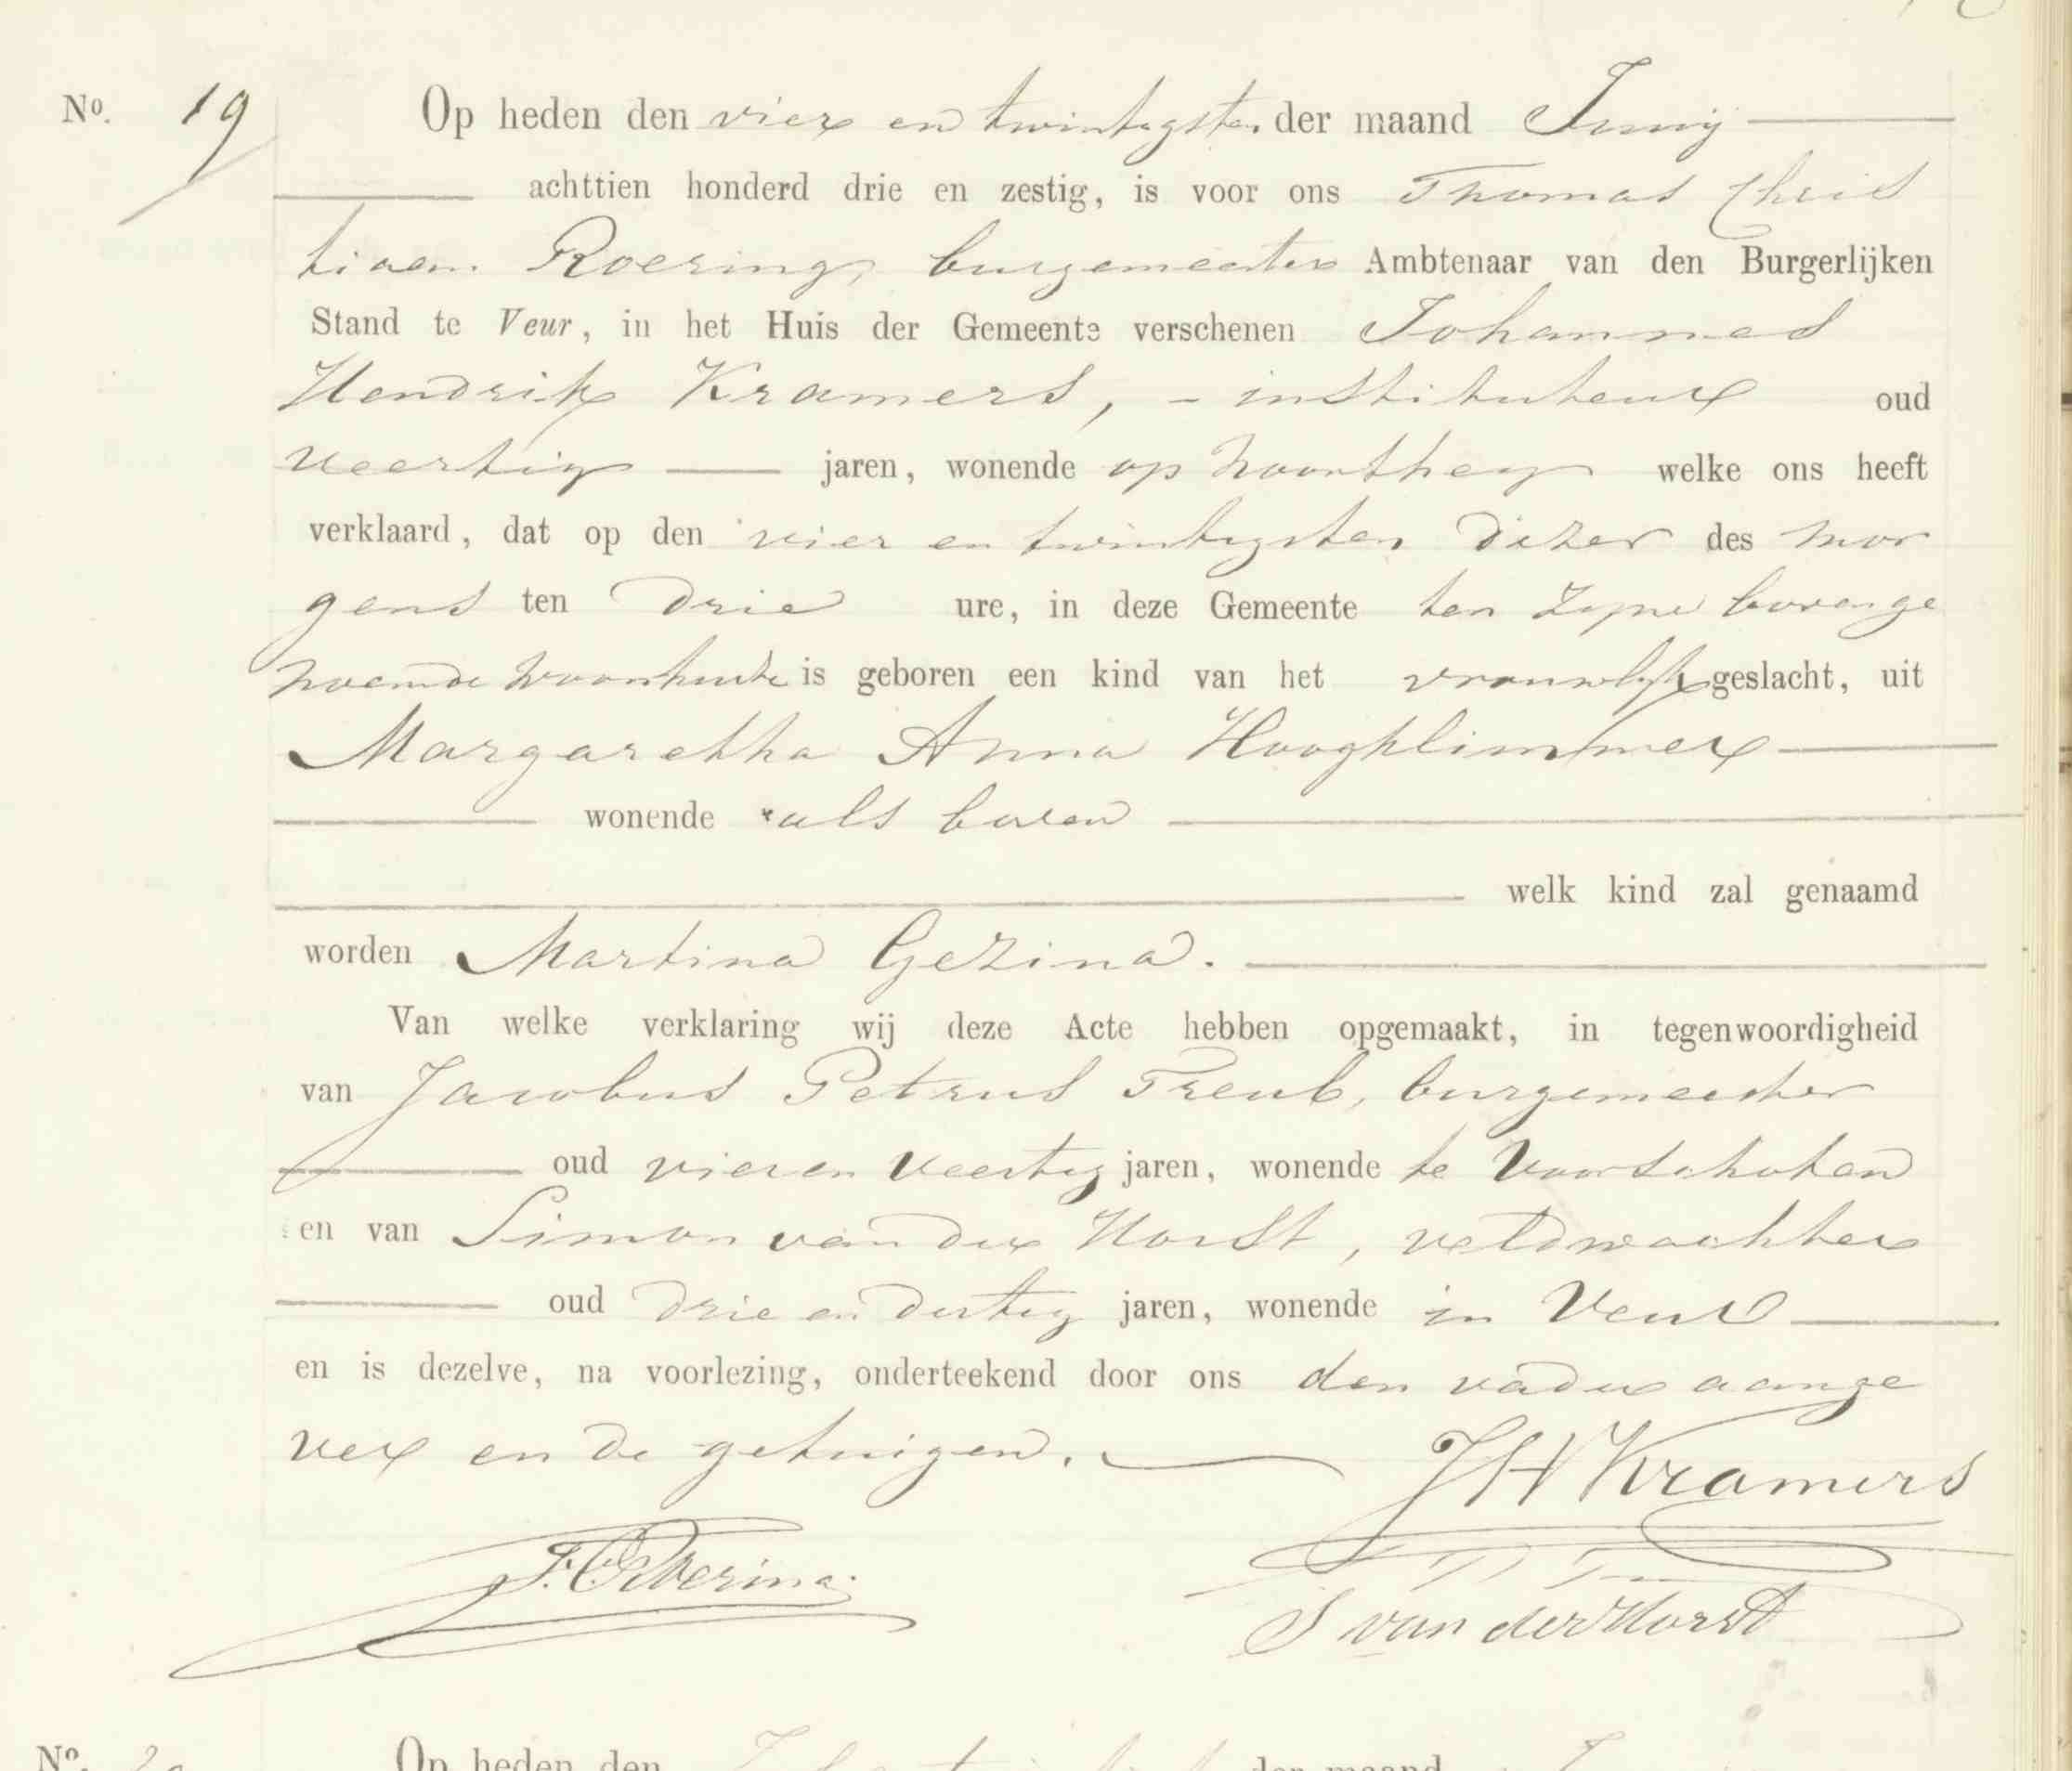 No. 19 Op heden den vier en twintigsten der maand Junij
achttien honderd drie en zestig, is voor ons Thomas Chris
tiaen Roering, burgemeester Ambtenaar van den Burgerlijken
Stand te Veur, in het Huis der Gemeente verschenen Johannes
Hendrik Kramers, - instituteur oud
veertig jaren, wonende op Noorthey welke ons heeft
verklaard, dat op den vier en twintigsten dezer des mor
gens ten drie ure, in deze Gemeente ten zijne bovenge
noemde woonhuize is geboren een kind van het vrouwelijk geslacht, uit
Margaretha Anna Hooghlimmer
wonende als boven
welk kind zal genaamd
worden Martina Gezina.
Van welke verklaring wij deze Acte hebben opgemaakt, in tegenwoordigheid
van Jacobus Petrus Treub, burgemeester
oud vier en veertig jaren, wonende te Voorschoten
en van Simon van der Horst, veldwachter
oud drie en dertig jaren, wonende in Veur
en is dezelve, na voorlezing, onderteekend door ons den vader aange
ver en de getuigen.
JH Kramers
T. C. Roering.
S van der Horst
No. 20 Op heden den der maand